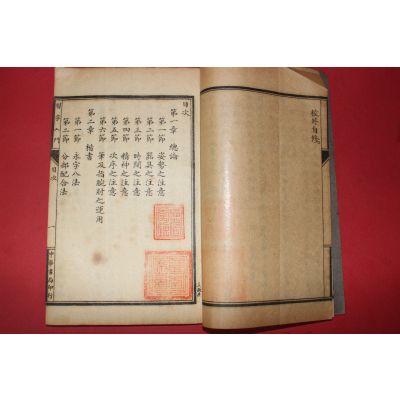 校外自修
目次
第一章 總論
第一節 姿勢之注意
第二節 器具之注意
第三節 時間之注意
第四節 精神之注意
第五節 次序之注意
第六節 筆及指腕肘之運用
第二章 楷書
第一節 永字八法
第二節 分部配合法
習字入門
目次
一
中華書局印行